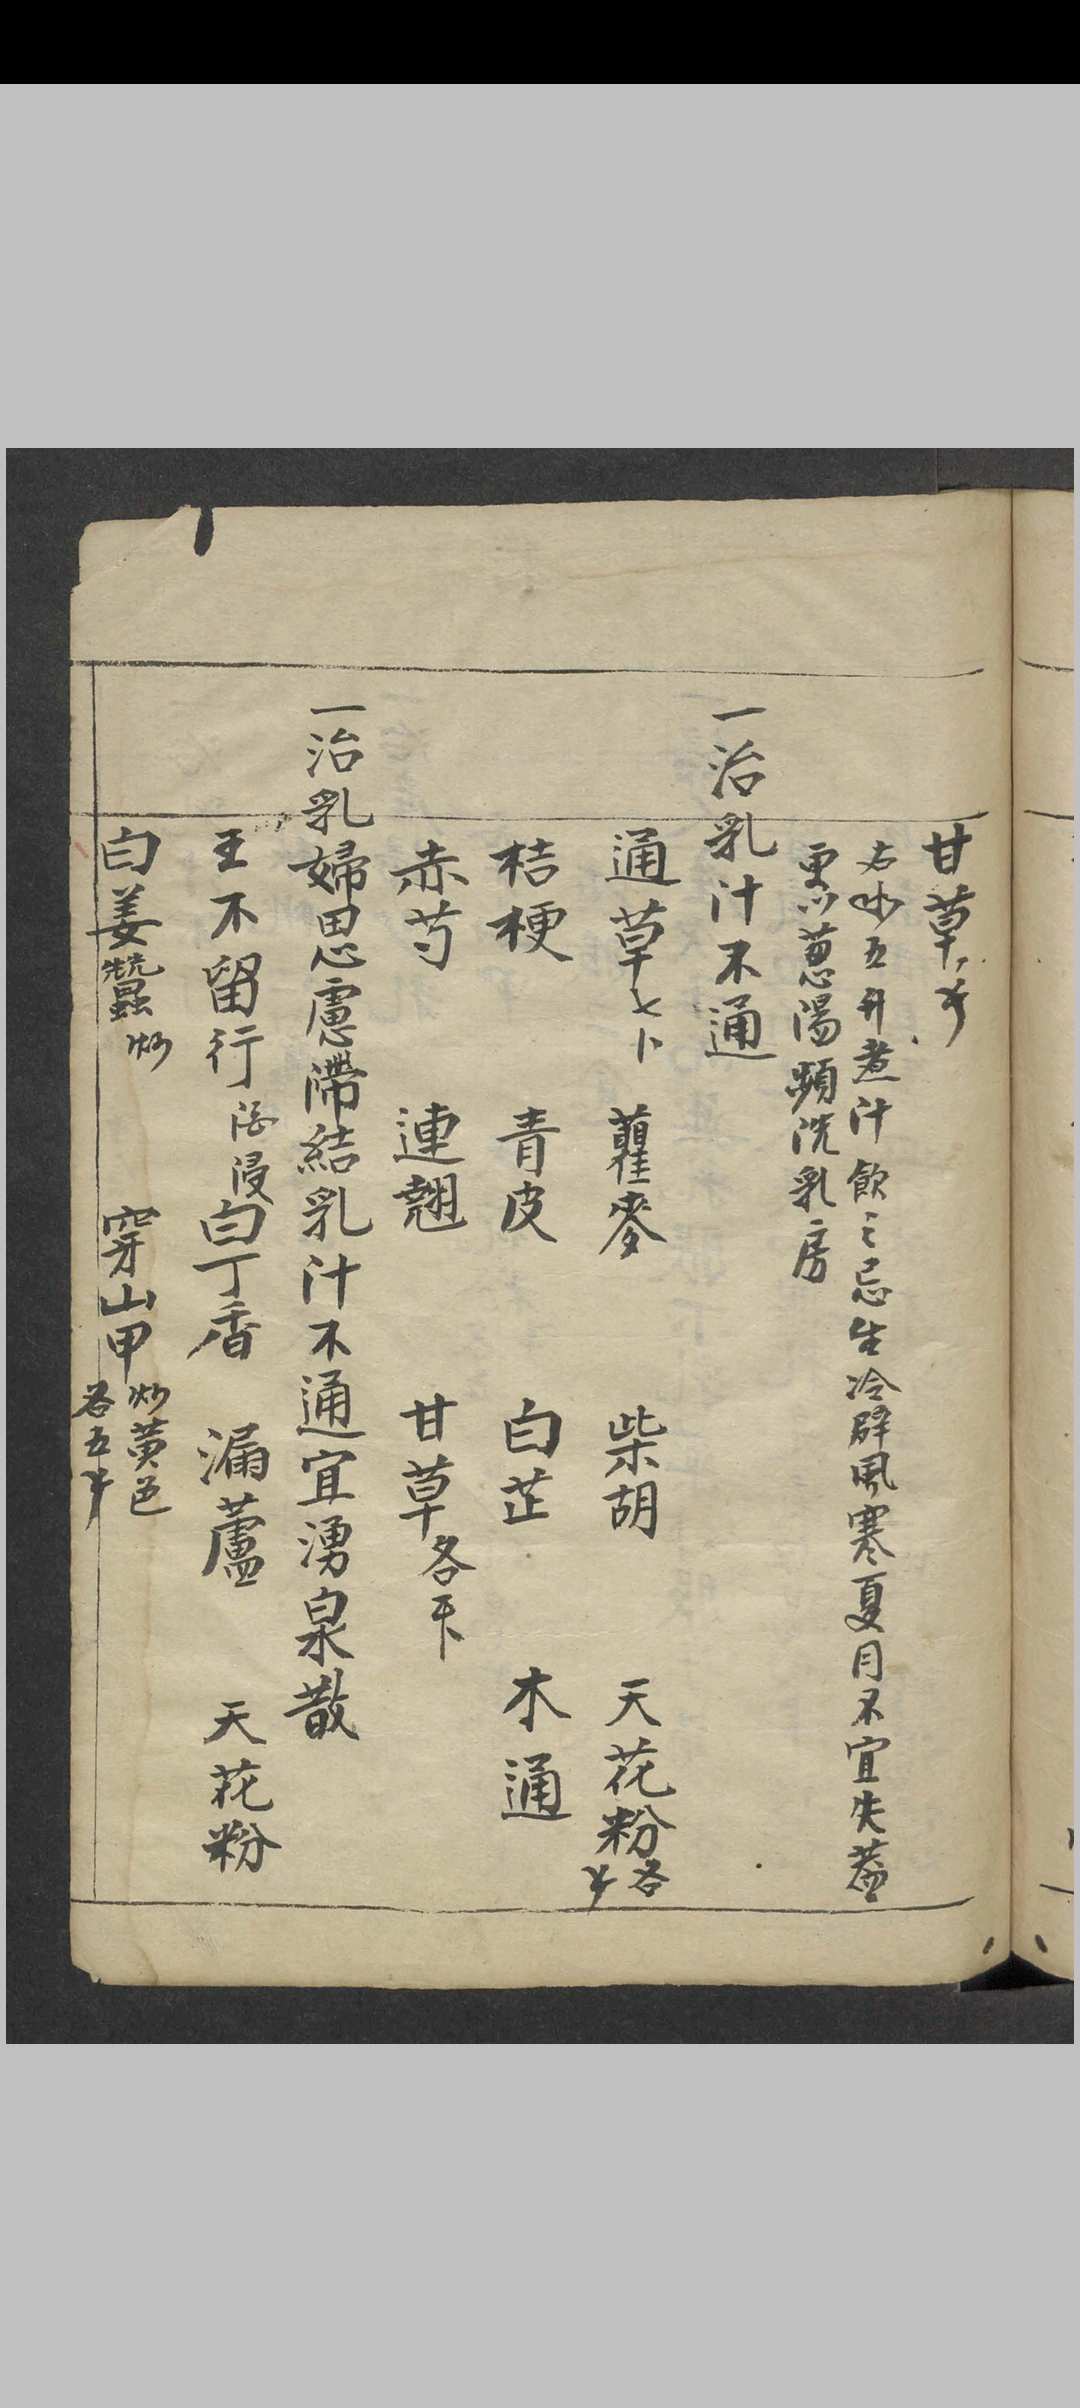 甘草
右水五升煮汁飲之忌生冷辟風寒夏月不宜失蓋
更以葱湯頻洗乳房
一治乳汁不通
通草七卜 蘿麥 柴胡 天花粉各
桔梗 青皮 白芷 木通
赤芍 連翹 甘草各五卜
一治乳婦思慮滯結乳汁不通宜湧泉散
王不留行酒浸 白丁香 漏蘆 天花粉
白姜蠶炒 穿山甲炒黃色各五